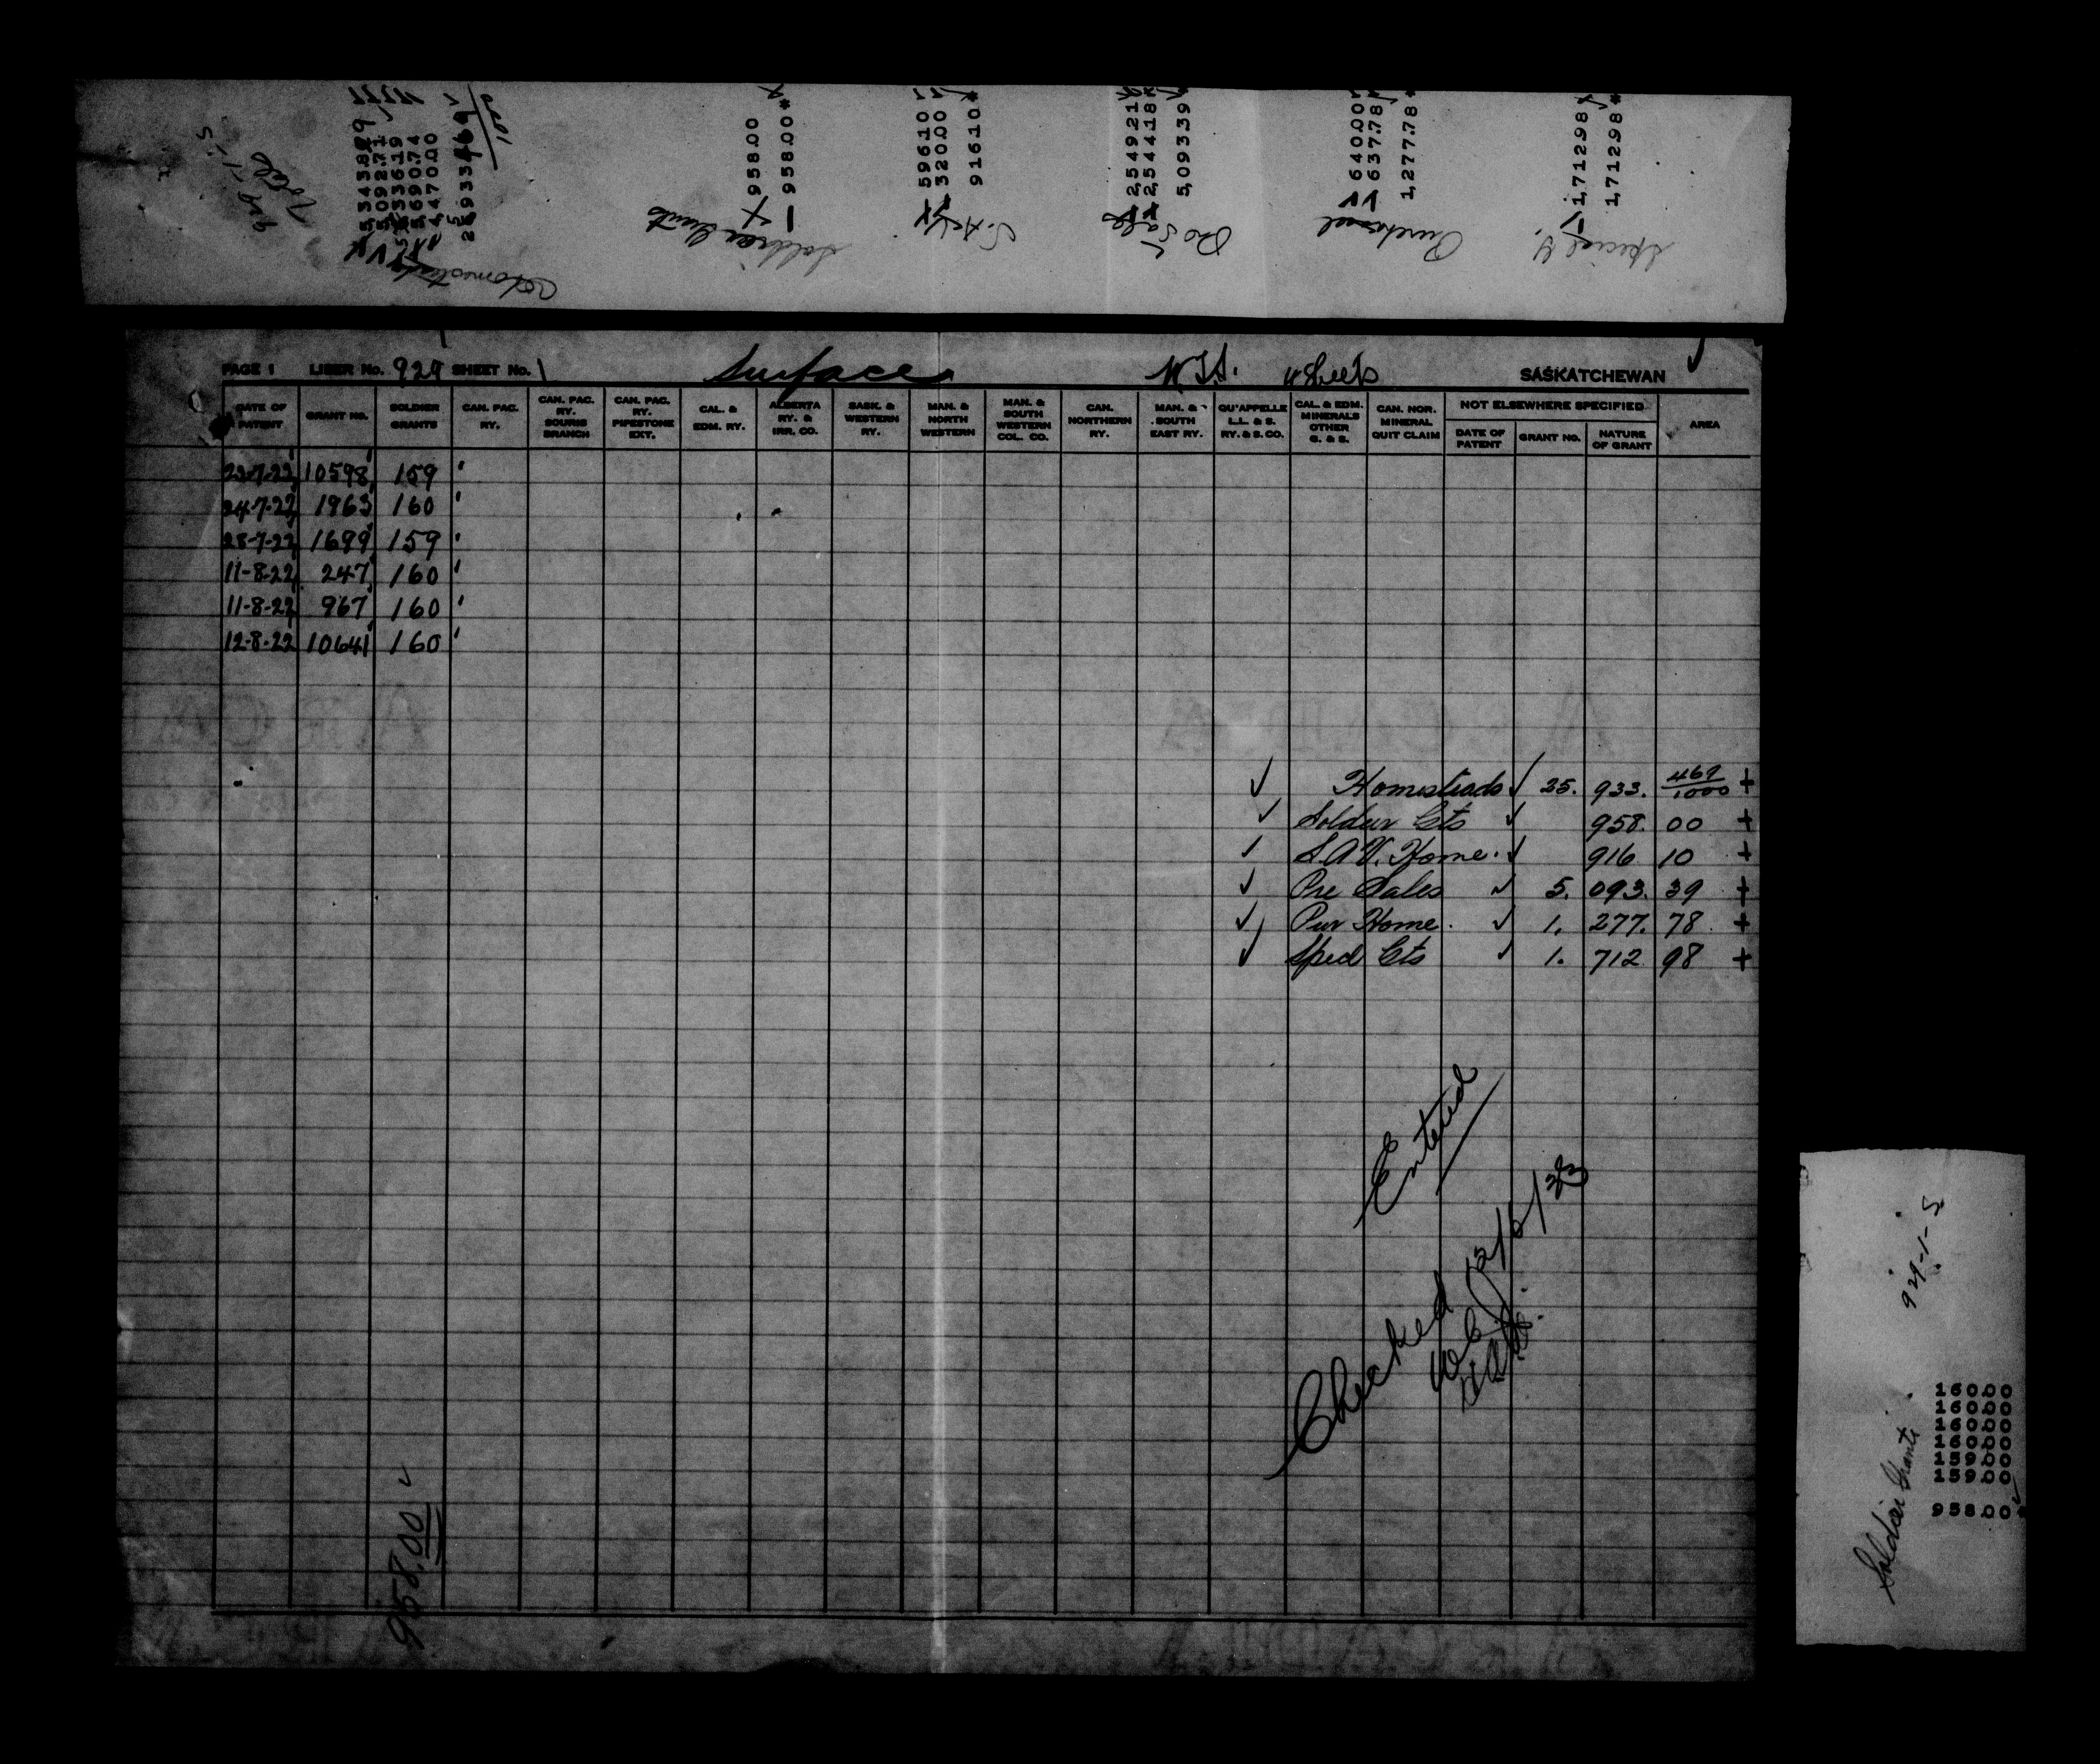 929-1-S
Total
5,343.829
5,092.71
5,336.19
5,690.74
4,470.00
25,933.469
Homesteads
958.00
958.00*
Soldier Grants
596.10
320.00
916.10*
S.A.V.
2,549.21
2,544.18
5,093.39*
Pre Sales
640.00
637.78
1,277.78*
Purchased
1,712.98
1,712.98*
Special G.
PAGE 1 LIBER No. 929 SHEET No. 1 Surface 4 Sheets SASKATCHEWAN
DATE OF PATENT
GRANT NO.
SOLDIER GRANTS
CAN. PAC. RY.
CAN. PAC. RY. SOURIS BRANCH
CAN. PAC. RY. PIPESTONE EXT.
CAL. & EDM. RY.
ALBERTA RY. & IRR. CO.
SASK. & WESTERN RY.
MAN. & NORTH WESTERN
MAN. & SOUTH WESTERN COL. CO.
CAN. NORTHERN RY.
MAN. & SOUTH EAST RY.
QU'APPELLE L.L. & S. RY. & S. CO.
CAL. & EDM. MINERALS OTHER G. & S.
CAN. NOR. MINERAL QUIT CLAIM
NOT ELSEWHERE SPECIFIED
DATE OF PATENT
GRANT NO.
NATURE OF GRANT
AREA
22-7-22 10598 159
24-7-22 1963 160
28-7-22 1699 159
11-8-22 247 160
11-8-22 967 160
12-8-22 10641 160
✓ Homesteads ✓ 25. 933. 469/1000 +
✓ Soldier Gts ✓ 958. 00 +
✓ S.A.V. Home. ✓ 916 10 +
✓ Pre Sales ✓ 5. 093. 39 +
✓ Pur Home. ✓ 1. 277. 78 +
✓ Specl Gts ✓ 1. 712 98 +
Entered
Checked 12/6/23
958.00 ✓
929-1-S
Soldier Grants
160.00
160.00
160.00
160.00
159.00
159.00
958.00*